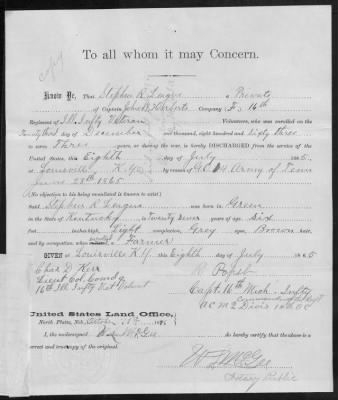 Copy
To all whom it may Concern.
Know Ye, That Stephen R. Lingus a Private
of Captain John B. Roberts Company F, 16th
Regiment of Ill. Infty Veteran Volunteers, who was enrolled on the
day of December one thousand, eight hundred and sixty three
to serve Three years, or during the war, is hereby DISCHARGED from the service of the
United States, this Eighth day of July 1865,
at Louisville Ky. by reason of Army of Tenn
June 28th 1865
(No objection to his being reenlisted is known to exist.)
Said Stephen R. Lingus was born in Green
in the State of Kentucky, is Twenty Seven years of age, Six
feet inches high, Light complexion, Grey eyes, Brown hair,
and by occupation, when enrolled, a Farmer
GIVEN at Louisville Ky. this Eighth day of July 1865
Chas D. Kerr
Lieut Col Comdg
16th Ill Infty Vet Volunt
Capt. 16th Mich. Infty
A C M 2 Divis 14th AC
United States Land Office,
North Platte, Neb. October 188
I, the undersigned do hereby certify that the above is a
correct and true copy of the original.
McGee
Notary Public